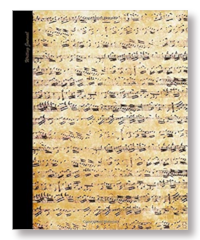 Writing Journal